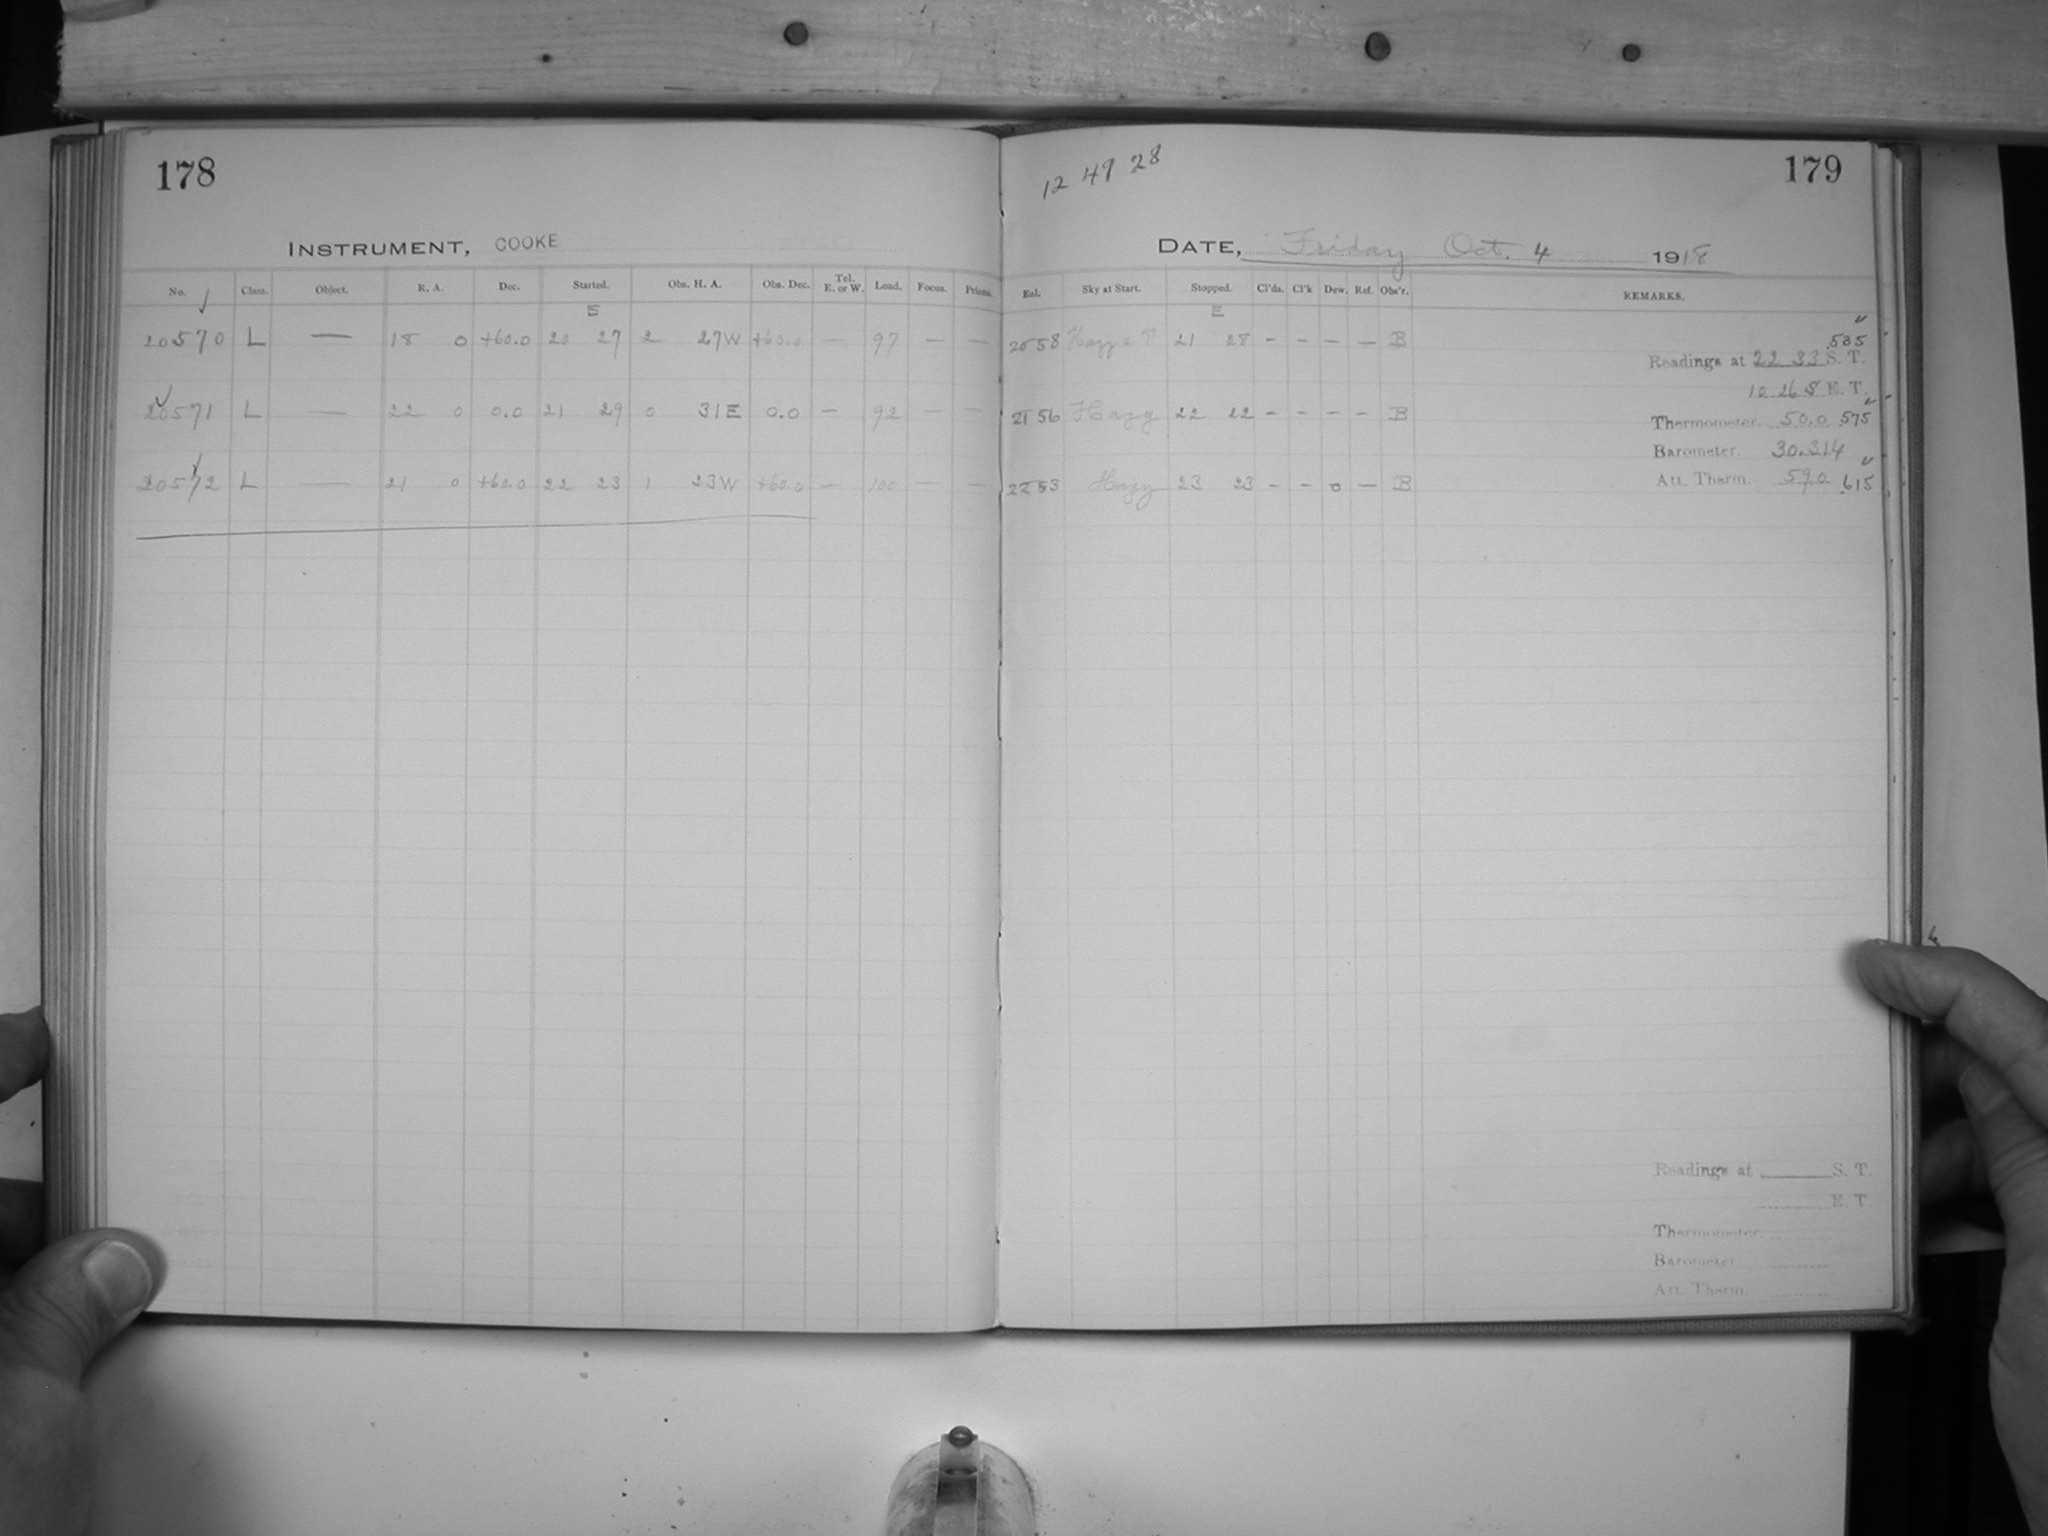 178
INSTRUMENT, COOKE
No. Class. Object. R. A. Dec. Started. Obs. H. A. Obs. Dec. Tel. E. or W. Load. Focus. Prisms.
E
20570 L — 18 0 +60.0 20 27 2 27W +60.0 — 97 — —
20571 L — 22 0 0.0 21 29 0 31E 0.0 — 92 — —
20572 L — 21 0 +60.0 22 23 1 23W +60.0 — 100 — —
12 49 28
179
DATE, Friday Oct. 4 1918
Eal. Sky at Start. Stopped. Cl'ds. Cl'k Dew. Ref. Obs'r. REMARKS.
E
20 58 Hazy & T 21 28 - - — — B .535
Readings at 22 33 S. T.
10 26.8 E. T.
21 56 Hazy 22 22 - - - - B
Thermometer. 50.0 .575
Barometer. 30.314
22 53 Hazy 23 23 - - 0 — B
Att. Therm. 59.0 .615
Readings at S. T.
E. T.
Thermometer.
Barometer
Att. Therm.